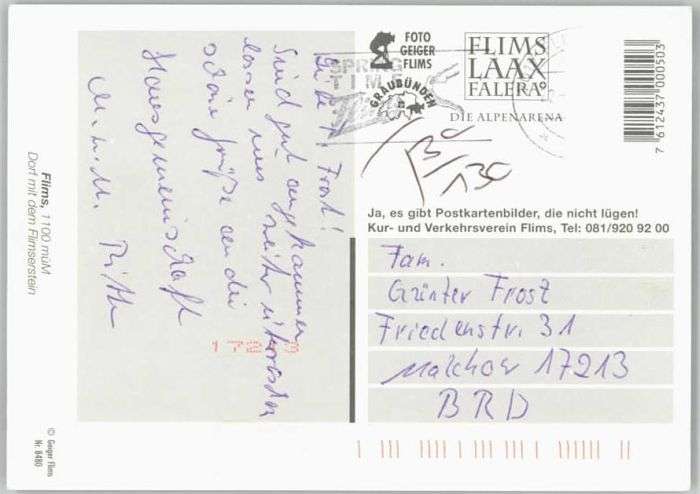 FOTO
GEIGER
FLIMS
FLIMS
LAAX
FALERA
DIE ALPENARENA
GRAUBÜNDEN
SPRING
TIME
7 612437 000503
130
Ja, es gibt Postkartenbilder, die nicht lügen!
Kur- und Verkehrsverein Flims, Tel: 081/920 92 00
Fam.
Günter Frost
Friedenstr. 31
Malchow 17213
BRD
Frost!
Sind gut angekommen
lassen uns weiter
schöne Grüße an die
Hausgemeinschaft
Flims, 1100 müM
Dorf mit dem Flimserstein
© Geiger Flims
Nr. 8480